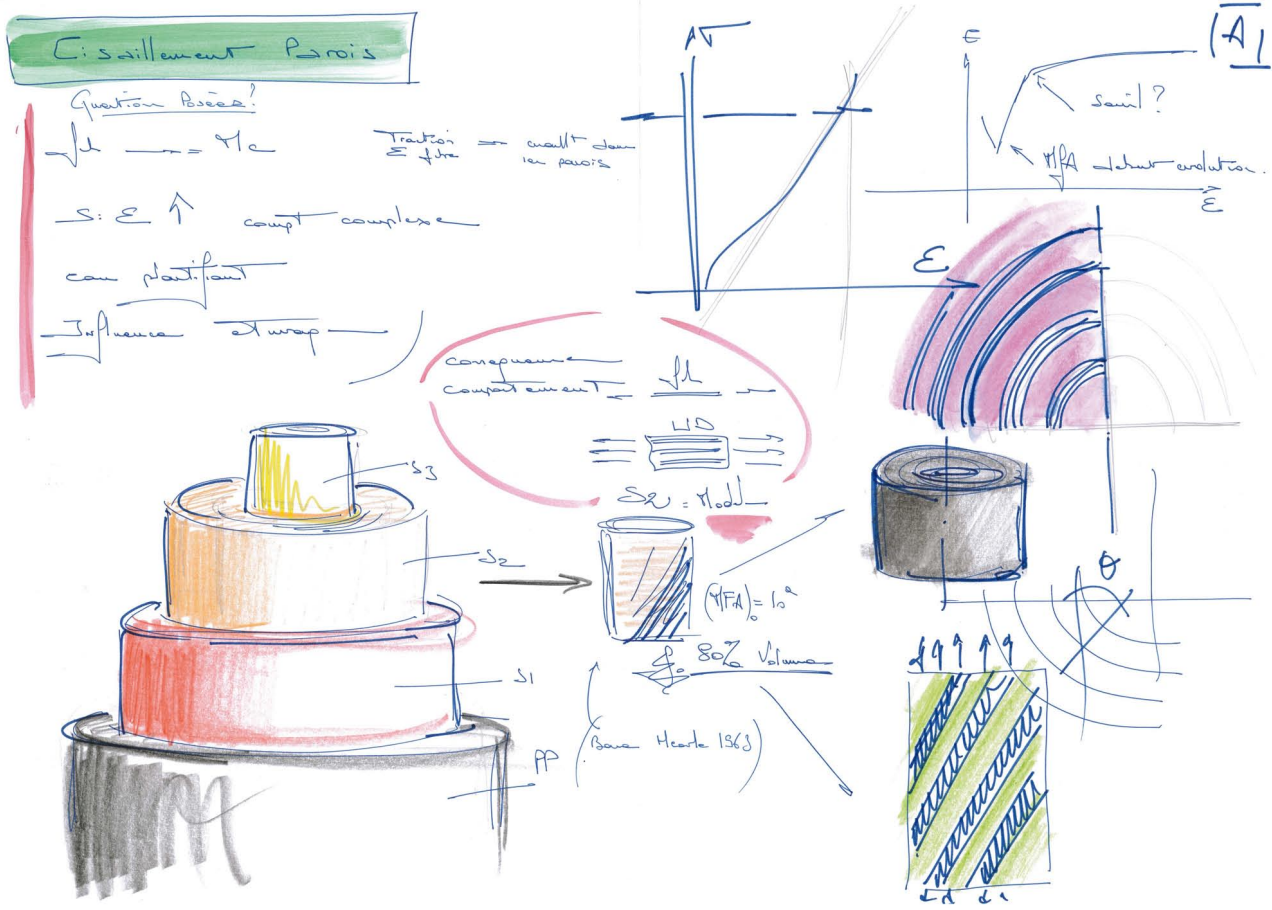 Cisaillement Parois
Question Posée?
Traction → cisaillt dans
E fibre les parois
Si E ↑ compt complexe
eau plastifiant
Influence
consequence
comportement
UD
S2 = Modèle
(MFA)₀ = 10°
80% Volume
(Base Hearle 1963)
S3
S2
S1
PP
σ
ε
E
seuil ?
MFA debut evolution.
ε
A
θ